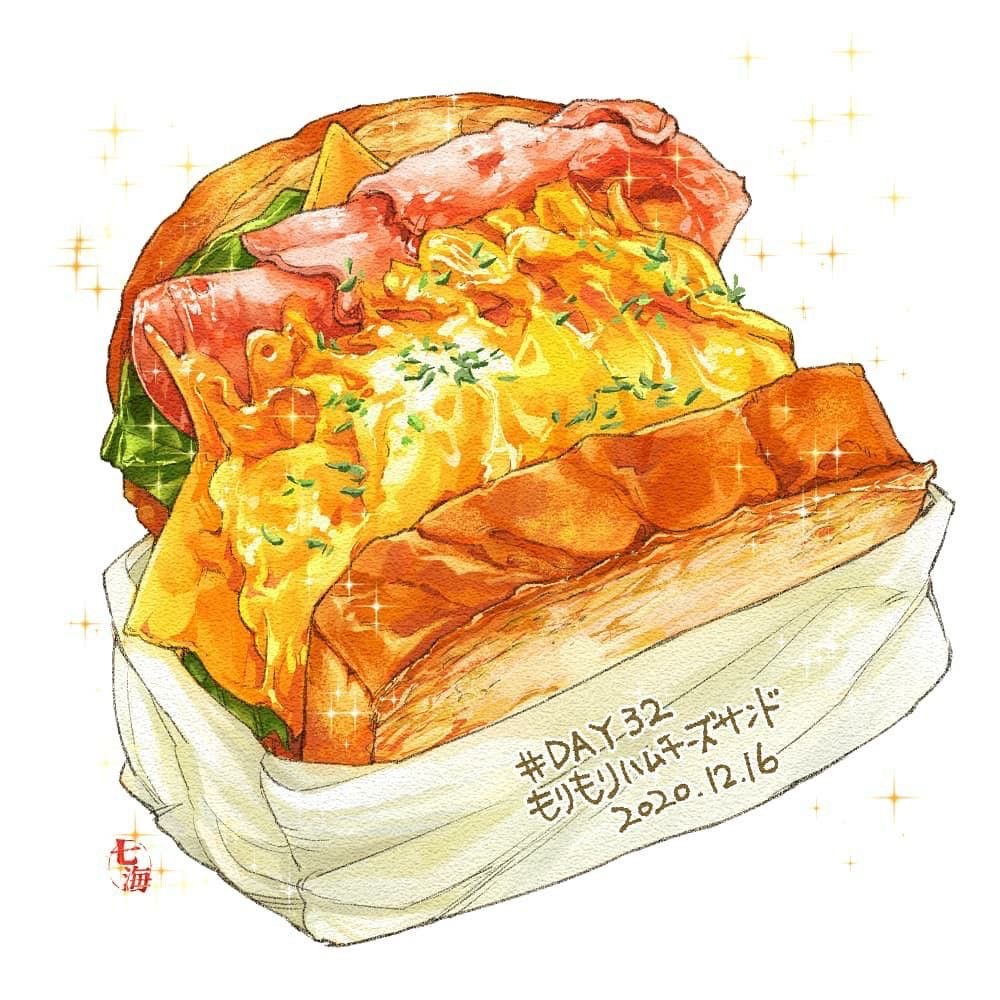 #DAY_32
もりもりハムチーズサンド
2020.12.16
七海